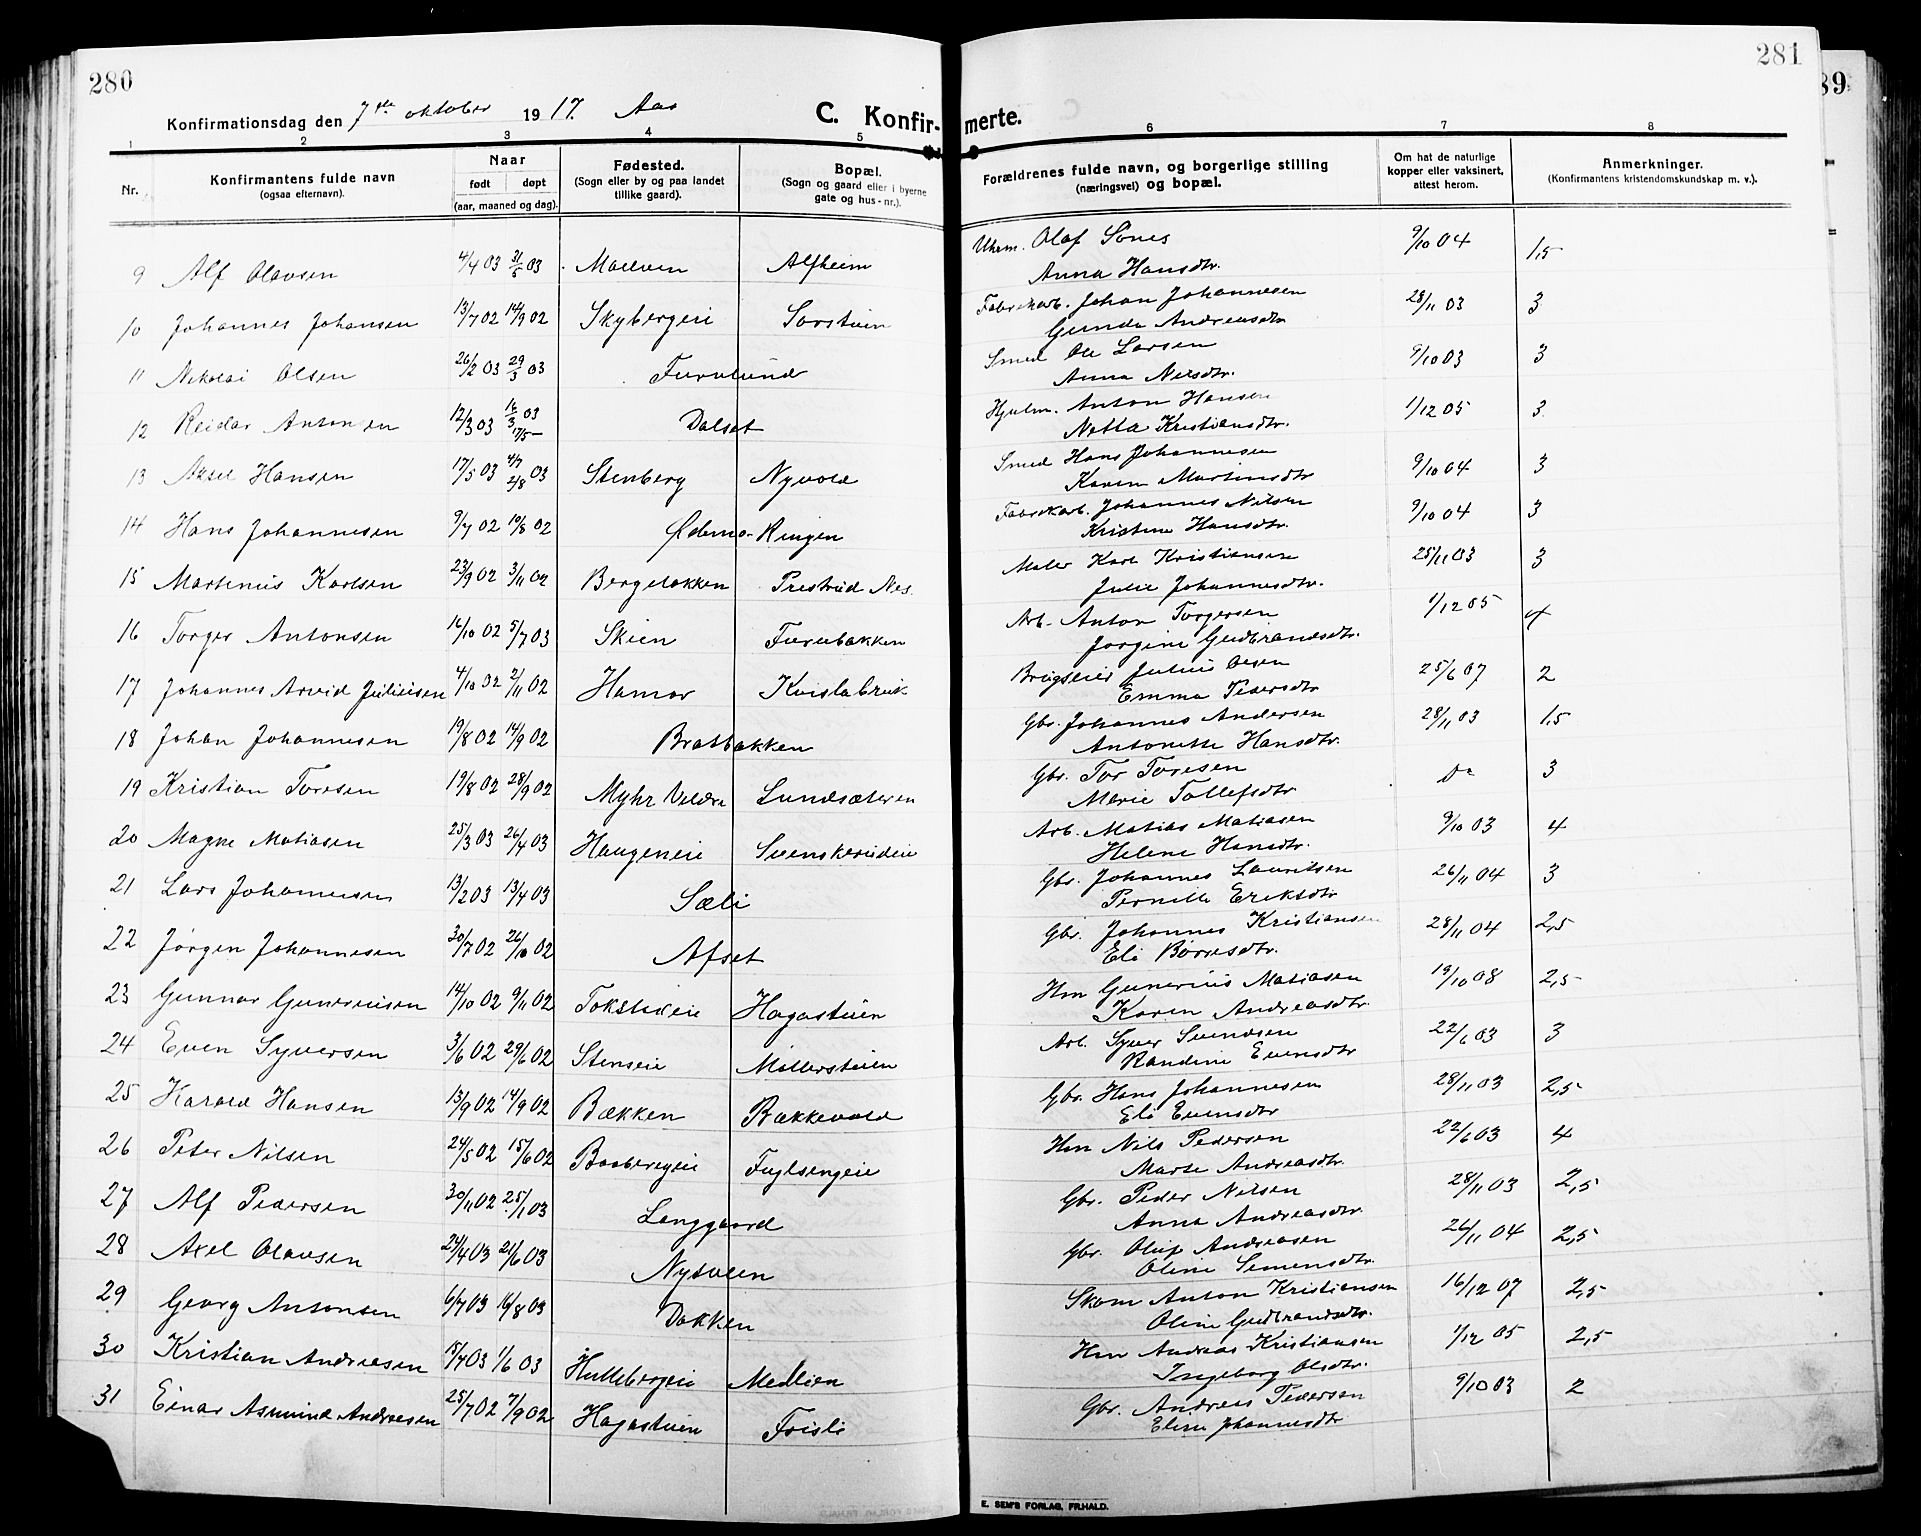 280
281
89
Konfirmationsdag den 7de oktober 1917. Aas
C. Konfirmerte.
1 2 3 4 5 6 7 8
Nr.
Konfirmantens fulde navn (ogsaa efternavn).
Naar født døpt (aar, maaned og dag).
Fødested. (Sogn eller by og paa landet tillike gaard).
Bopæl. (Sogn og gaard eller i byerne gate og hus-nr.).
Forældrenes fulde navn, og borgerlige stilling (næringsvei) og bopæl.
Om hat de naturlige kopper eller vaksinert, attest herom.
Anmerkninger. (Konfirmantens kristendomskundskap m. v.).
9 Alf Olavsen 4/4 03 31/5 03 Maelven Alfheim Olaf Sones 9/10 04 1,5
Anna Hansdtr.
10 Johannes Johansen 13/7 02 14/9 02 Skybergeie Sorstuen Fabrikarb. Johan Johannesen 28/11 03 3
Gunda Andreasdtr
11 Nikolai Olsen 26/2 03 29/3 03 Furulund Smed Ole Larsen 9/10 03 3
Anna Nilsdtr.
12 Reidar Antonsen 12/3 03 16/3 03 17/5 — Dalset Hjulm. Anton Hansen 1/12 05 3
Netta Kristiansdtr.
13 Aksel Hansen 17/5 03 4/7 2/8 03 Stenberg Nyvold Smed Hans Johannesen 9/10 04 3
Karen Martinsdtr
14 Hans Johannesen 9/7 02 10/8 02 Ødemo-Ringen Fabrikarb. Johannes Nilsen 9/10 04 3
Kristine Hansdtr.
15 Martenius Karlsen 23/9 02 3/11 02 Bergeløkken Prestrud Nes. Maler Karl Kristiansen 25/11 03 3
Julie Johannesdtr.
16 Torger Antonsen 16/10 02 5/7 03 Skien Furubakken Arb. Anton Torgersen 1/12 05 4
Jorgine Gudbrandsdtr.
17 Johannes Arvid Juliussen 4/10 02 2/11 02 Hamar Kvislabruk Brugseier Julius Olsen 25/6 07 2
Emma Pedersdtr
18 Johan Johannesen 19/8 02 14/9 02 Bratbakken Gbr. Johannes Andersen 28/11 03 1,5
Antonette Hansdtr.
19 Kristian Toresen 19/8 02 28/9 02 Myhr Veldre Lundsæteren Gbr. Tor Toresen Do 3
Marie Tollefsdtr
20 Magne Matiasen 25/3 03 26/4 03 Haugeneie Svenskerudeie Arb. Matias Matiasen 9/10 03 4
Helene Hansdtr.
21 Lars Johannesen 13/2 03 13/4 03 Sæli Gbr. Johannes Lauritsen 26/11 04 3
Pernille Eriksdtr
22 Jørgen Johannesen 30/7 02 26/10 02 Afset Gbr. Johannes Kristiansen 28/11 04 2,5
Eli Børresdtr.
23 Gunnar Guneriussen 14/10 02 9/11 02 Tokstadeie Hagastuen Hm Gunerius Matiasen 19/10 08 2,5
Karen Andreasdtr
24 Even Syversen 3/6 02 29/6 02 Stenseie Møllerstuen Arb. Syver Svendsen 22/6 03 3
Randine Evensdtr
25 Harald Hansen 13/9 02 14/9 02 Bækken Bækkevold Gbr. Hans Johannesen 28/11 03 2,5
Eli Evensdtr
26 Peter Nilsen 24/5 02 15/6 02 Baabergeie Fuglsengeie Hm Nils Pedersen 22/6 03 4
Marte Andreasdtr.
27 Alf Pedersen 30/11 02 25/1 03 Langgaard Gbr. Peder Nilsen 28/11 03 2,5
Anna Andreasdtr.
28 Axel Olausen 24/4 03 21/6 03 Nytveen Gbr. Oluf Andreasen 26/11 04 2,5
Oline Simensdtr.
29 Georg Antonsen 6/7 03 16/8 03 Dokken Skom Anton Kristiansen 16/12 07 2,5
Oline Gudbrandsdtr.
30 Kristian Andreasen 15/4 03 1/6 03 Hullebergeie Medlien Hm Andreas Kristiansen 1/12 05 2,5
Ingeborg Olsdtr.
31 Einar Asmund Andreasen 25/7 02 7/9 02 Hagastuen Frisli Gbr. Andreas Pedersen 9/10 03 2
Elise Johannesdtr
E. SEM'S FORLAG, FR.HALD.